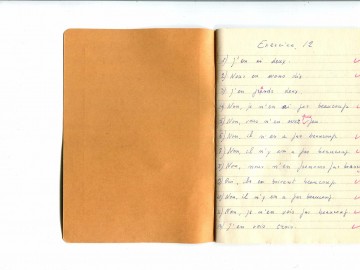 Exercice 12
1) J'en ai deux.
2) Nous en avons dix.
3) J'en prends deux.
4) Non, je n'en ai pas beaucoup.
5) Non, vous n'en avez pas
6) Non, il n'en a pas beaucoup.
7) Non, il n'y en a pas beaucoup.
8) Non, nous n'en prenons pas beaucoup
9) Oui, ils en boivent beaucoup.
Non, il n'y en a pas beaucoup.
Non, je n'en vois pas beaucoup.
J'en vois trois.